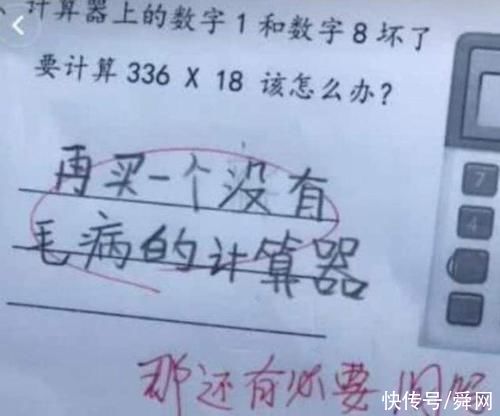 计算器上的数字1和数字8坏了
要计算 336 X 18 该怎么办？
再买一个没有
毛病的计算器
7
4
那还有必要
快传号/舜网